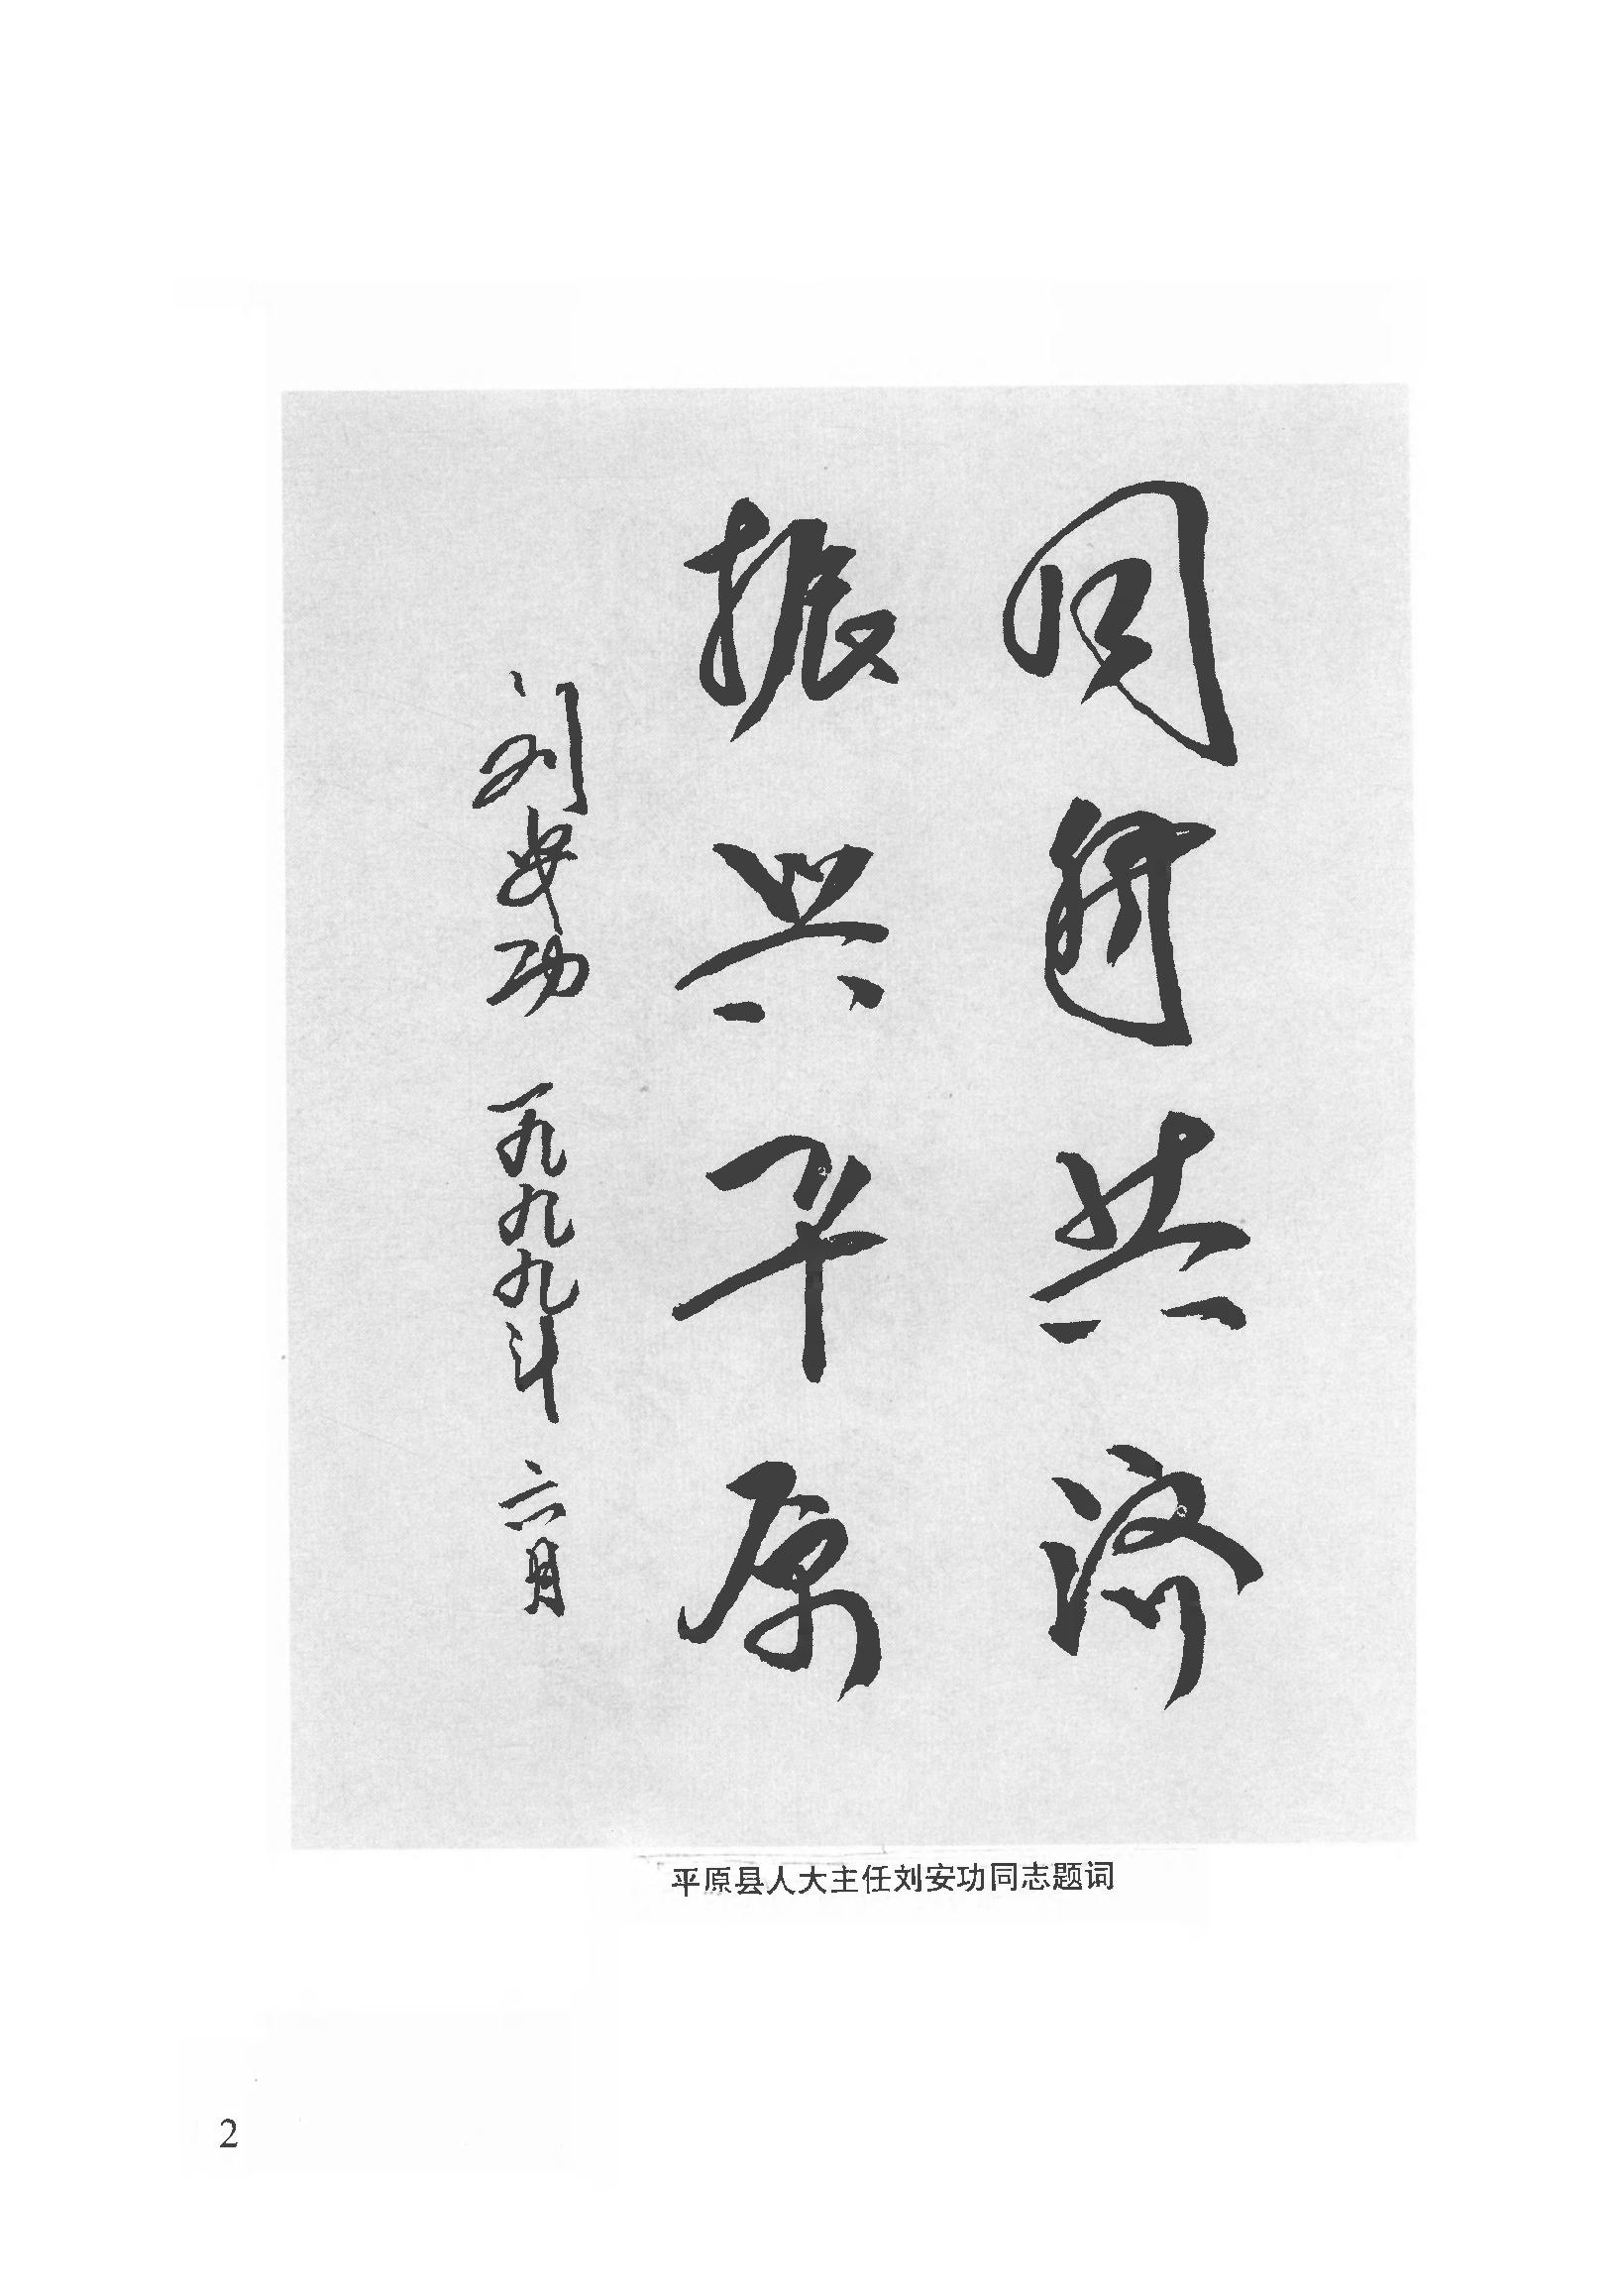 同舟共济
振兴平原
刘安功 一九九九年六月
平原县人大主任刘安功同志题词
2